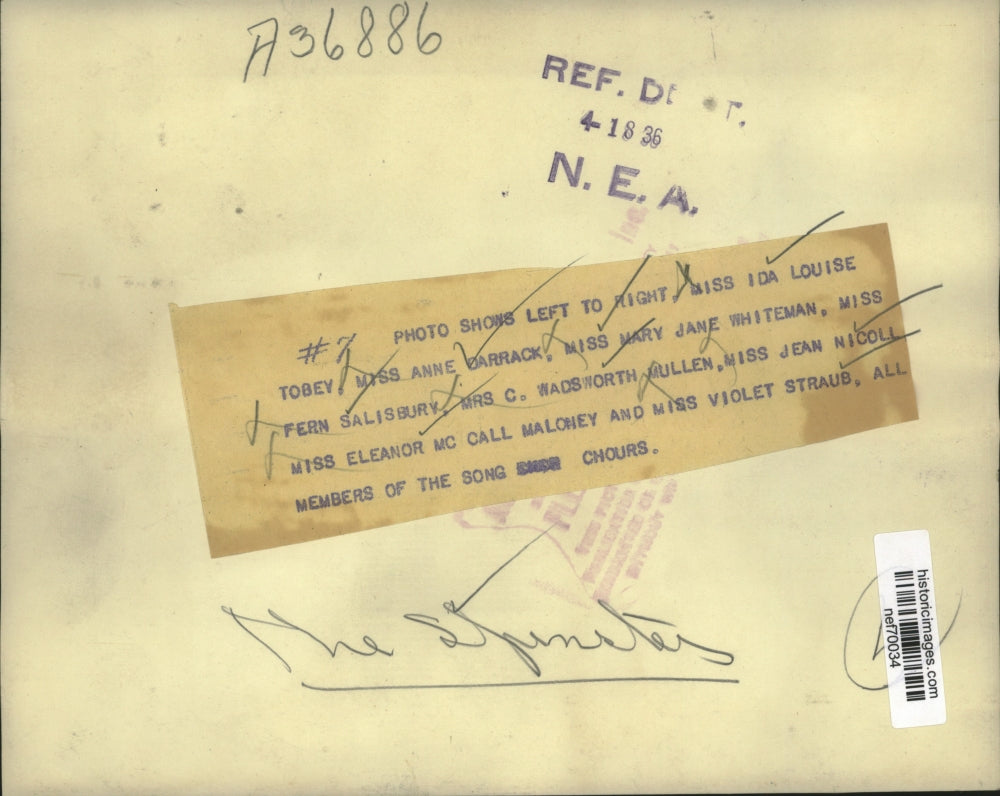 A36886
REF. D T.
4-18 36
N. E. A.
#7 PHOTO SHOWS LEFT TO RIGHT, MISS IDA LOUISE
TOBEY, MISS ANNE DARRACK, MISS MARY JANE WHITEMAN, MISS
FERN SALISBURY, MRS C. WADSWORTH MULLEN, MISS JEAN NICOLL
MISS ELEANOR MC CALL MALONEY AND MISS VIOLET STRAUB, ALL
MEMBERS OF THE SONG CHOURS.
The Spinsters
historicimages.com
nef70034